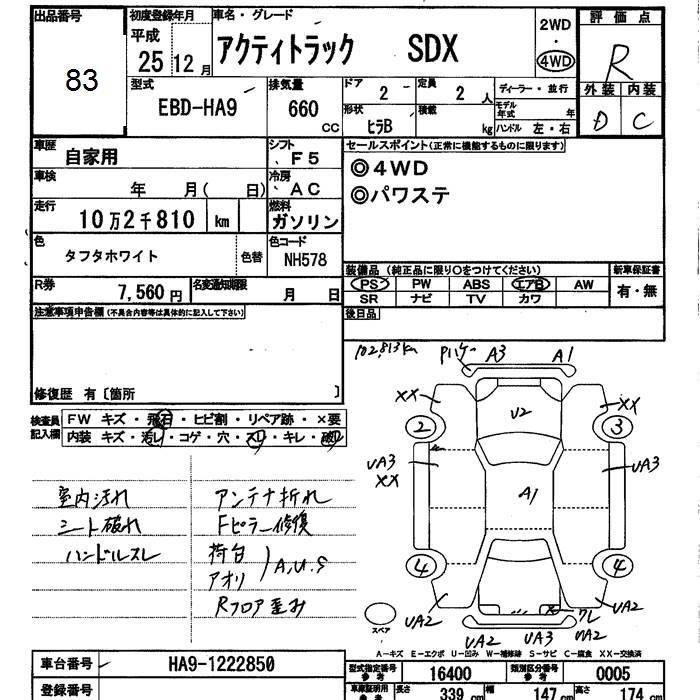 出品番号
83
初度登録年月
平成
25 12月
車名・グレード
アクティトラック SDX
2WD
4WD
評価点
R
外装 内装
D C
型式
EBD-HA9
排気量
660
cc
ドア
2 -
形状
ヒラB
定員
2 人
積載
kg
ディーラー・並行
モデル年式 年
ハンドル 左・右
車歴
自家用
シフト
F5
車検
年 月( 日)
冷房
AC
走行
10万2千810 km
燃料
ガソリン
色
タフタホワイト
色替
色コード
NH578
R券
7,560円
名変通知期限
月 日
セールスポイント(正常に機能するものに限ります)
◎4WD
◎パワステ
装備品(純正品に限り○をつけてください)
新車保証書
PS PW ABS エアB AW
SR ナビ TV カワ
有・無
後日品
注意事項申告欄(不具合内容等は具体的に記入して下さい)
修復歴 有〔箇所 〕
検査員記入欄
FW キズ・飛石・ヒビ割・リペア跡・×要
内装 キズ・汚レ・コゲ・穴・スレ・キレ・破レ
室内汚れ
シート破れ
ハンドルスレ
アンテナ折れ
Fピラー修復
荷台
アオリ
A,U,S
Rフロア歪み
102,813km
Pハゲ A3 A1
XX XX
U2
2 3
UA3
XX
UA3
A1
4 4
UA2 UA2
ワレ
UA2 UA3 UA2
スペア
A-キズ E-エクボ U-凹み W-補修跡 S-サビ C-腐食 XX-交換済
車台番号
HA9-1222850
登録番号
型式指定番号
参考
16400
類別区分番号
参考
0005
車庫証明用
参考
長さ 339 cm 幅 147 cm 高さ 174 cm